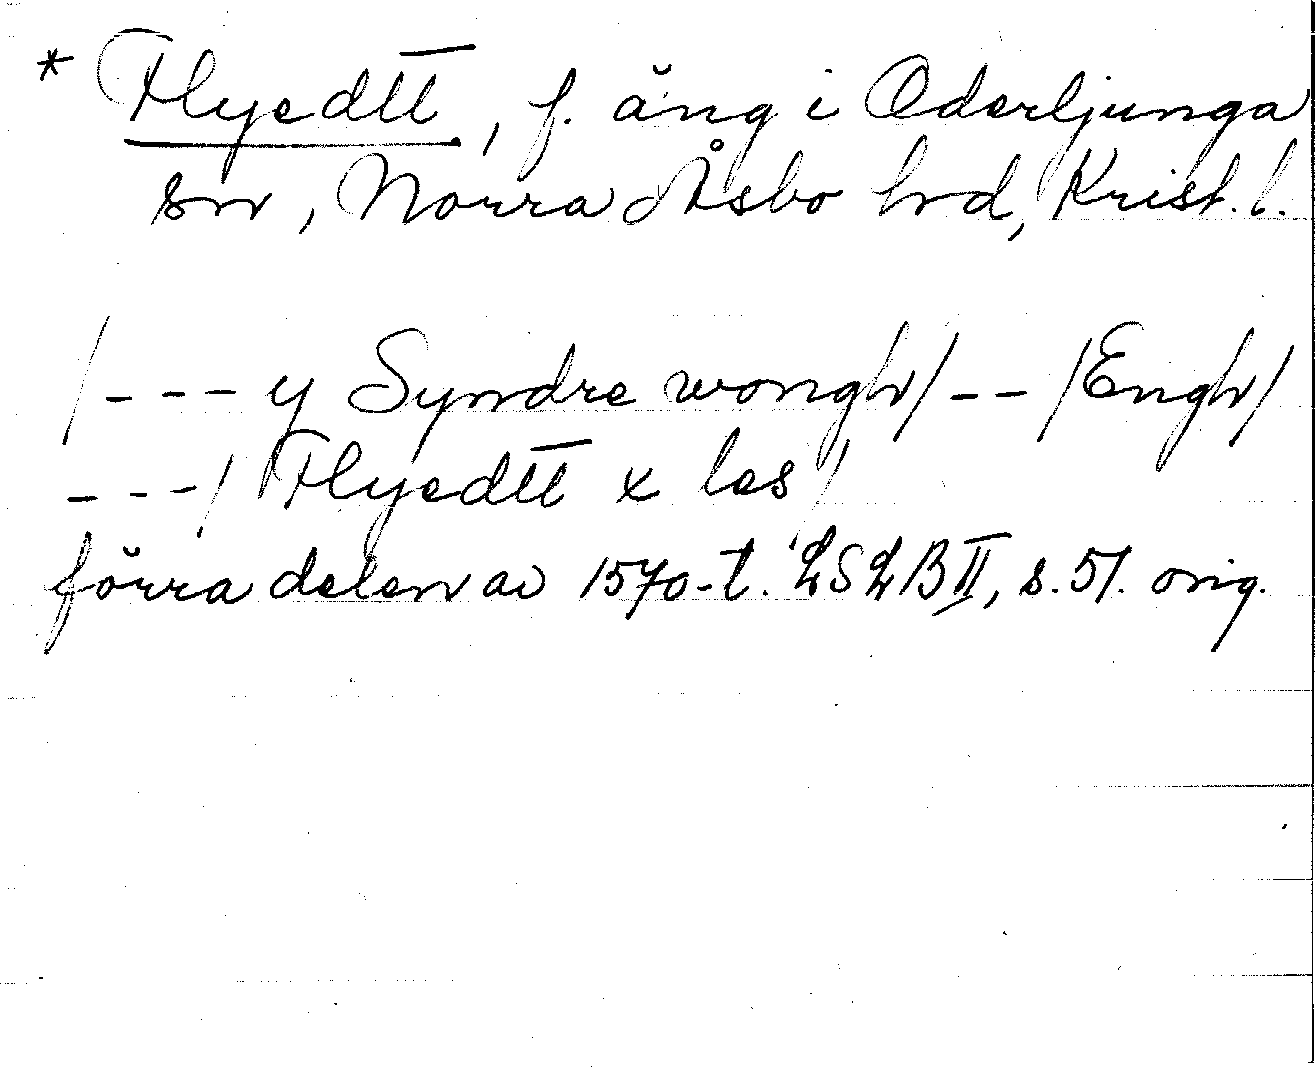 * Flyedtt̅, f. äng i Oderljunga
sn, Norra Åsbo hd, Krist. l.
/--- y Syndre wongh/ -- /Engh/
---/ Flyedtt̅ x les/
förra delen av 1570-t. LSLB II, s. 51. orig.